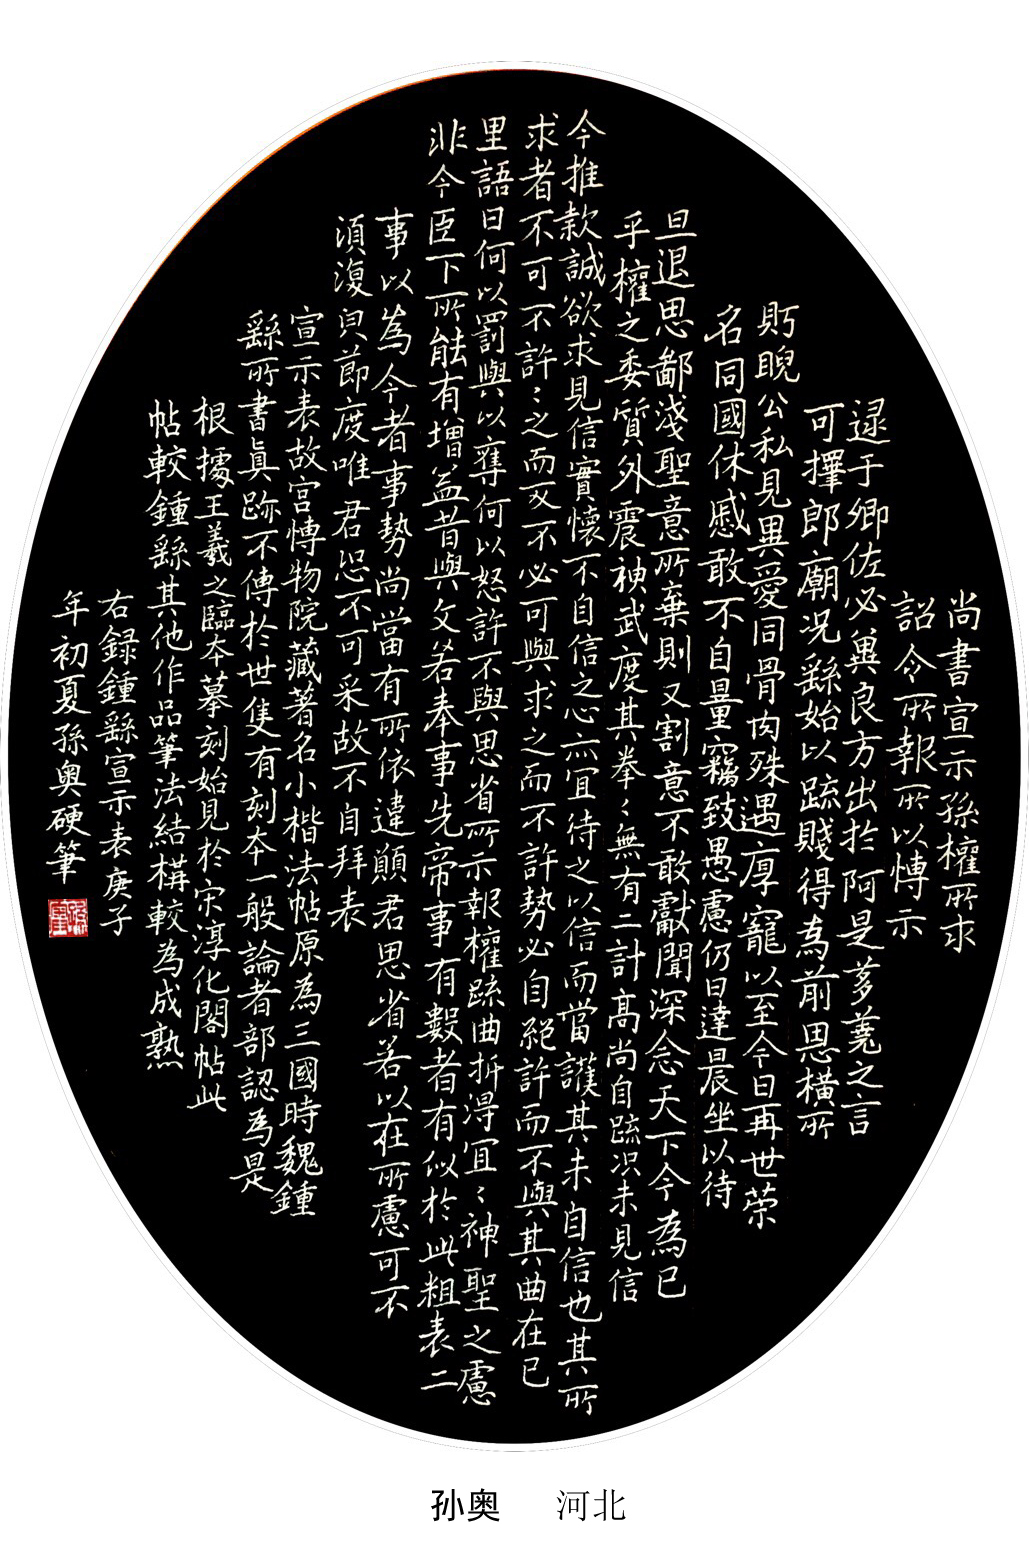 尚書宣示孫權所求
詔令所報所以博示
逯于卿佐必兾良方出於阿是芻蕘之言
可擇郎廟况繇始以疏賤得為前恩橫所
眄睨公私見異愛同骨肉殊遇厚寵以至今日再世荣
名同國休慼敢不自量竊致愚慮仍日達晨坐以待
旦退思鄙淺聖意所棄則又割意不敢獻聞深念天下今為已
乎權之委質外震神武度其拳〻無有二計高尚自疏况未見信
今推款誠欲求見信實懷不自信之心亦宜待之以信而當護其未自信也其所
求者不可不許〻之而反不必可與求之而不許勢必自絕許而不與其曲在己
里語曰何以罰與以奪何以怒許不與思省所示報權疏曲折淂宜〻神聖之慮
非今臣下所能有增益昔與文若奉事先帝事有數者有似於此粗表二
事以為今者事勢尚當有所依違願君思省若以在所慮可不
湏復皃節度唯君恐不可采故不自拜表
宣示表故宫博物院藏著名小楷法帖原為三國時魏鍾
繇所書真跡不傳於世隻有刻本一般論者部認為是
根據王羲之臨本摹刻始見於宋淳化閣帖此
帖較鍾繇其他作品筆法結構較為成熟
右録鍾繇宣示表庚子
年初夏孫奥硬筆
孙奥 河北